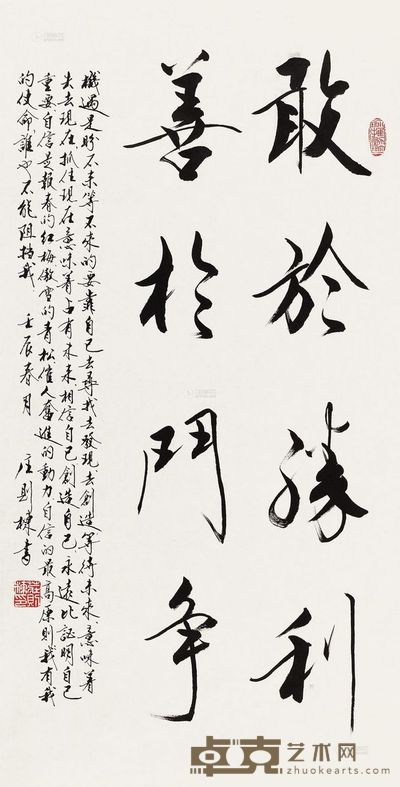 敢於勝利
善於鬥争
機遇是盼不来等不來的要靠自己去尋找去發現去創造等待未來意味着
失去現在抓住現在意味着占有未来相信自己創造自己永遠比証明自己
重要自信是報春的红梅傲雪的青松催人奮進的動力自信的最高原則我有我
的使命誰也不能阻擋我 壬辰春月 庄則棟書
卓克艺术网
www.zhuokearts.com